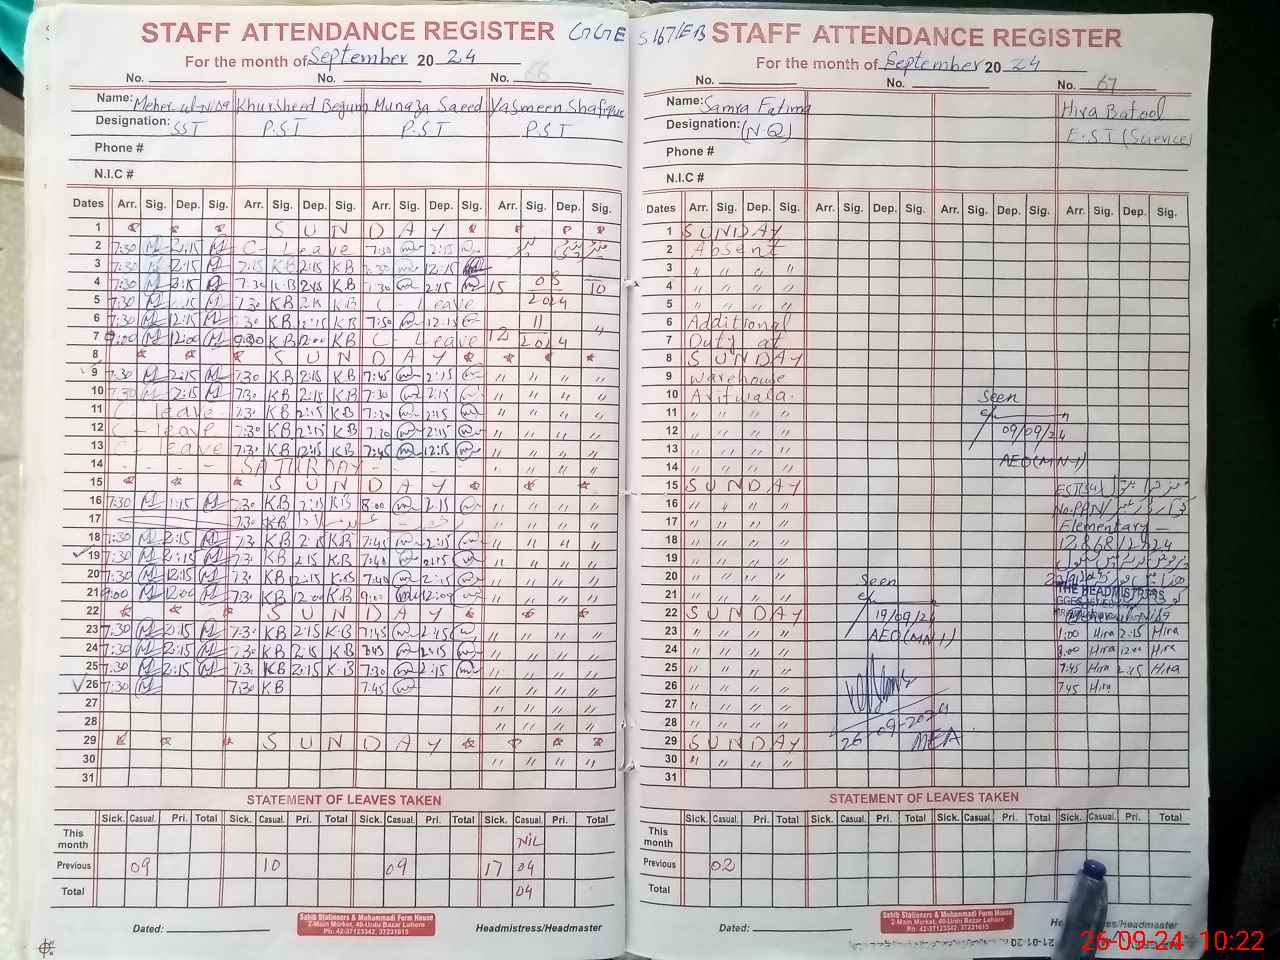 STAFF ATTENDANCE REGISTER GGE
For the month of September 20 24
No. No. No. 66
Name: Meher ul-Nisa Khursheed Begum Munaza Saeed Yasmeen Shafique
Designation: SST P.S.T P.S.T P.S.T
Phone #
N.I.C #
Dates Arr. Sig. Dep. Sig. Arr. Sig. Dep. Sig. Arr. Sig. Dep. Sig. Arr. Sig. Dep. Sig.
1 S U N D A Y
2 7:30 M 2:15 M C - Leave 7:30 2:15
3 7:30 M 2:15 M 7:15 KB 2:15 KB 7:30 12:15
4 7:30 M 2:15 M 7:30 K.B 2:15 KB 7:30 2:15 15 08 10
5 7:30 M 2:15 M 7:30 KB 2:15 KB C - Leave 2024
6 7:30 M 12:15 M 7:30 KB 12:15 KB 7:50 12:15 11 "
7 9:00 M 12:00 M 9:00 KB 12:00 KB C - Leave 12 2024
8 S U N D A Y
9 7:30 M 2:15 M 7:30 K.B 2:15 KB 7:45 2:15 " " " "
10 7:30 M 2:15 M 7:30 KB 2:15 KB 7:30 2:15 " " " "
11 C - leave 7:30 KB 2:15 KB 7:30 2:15 " " " "
12 C - leave 7:30 KB 2:15 KB 7:30 2:15 " " " "
13 C - leave 7:30 KB 12:15 KB 7:45 12:15 " " " "
14 - - - - SATURDAY - - - " " " "
15 S U N D A Y
16 7:30 M 1:15 M 7:30 KB 2:15 K.B 8:00 2:15 " " " "
17 7:30 KB " " " "
18 7:30 M 2:15 M 7:30 KB 2:15 KB 7:45 2:15 " " " "
19 7:30 M 2:15 M 7:30 KB 2:15 K.B 7:40 2:15 " " " "
20 7:30 M 12:15 M 7:30 KB 12:15 K.B 7:40 2:15 " " " "
21 9:00 M 12:00 M 7:30 KB 12:00 KB 9:00 12:00 " " " "
22 S U N D A Y
23 7:30 M 2:15 M 7:30 KB 2:15 K.B 7:45 2:45 " " " "
24 7:30 M 2:15 M 7:30 KB 2:15 KB 7:45 2:15 " " " "
25 7:30 M 2:15 M 7:30 KB 2:15 K-B 7:30 2:15 " " " "
26 7:30 M 7:30 KB 7:45 " " " "
27 " " " "
28 " " " "
29 S U N D A Y
30 " " " "
31
STATEMENT OF LEAVES TAKEN
Sick. Casual. Pri. Total Sick. Casual. Pri. Total Sick. Casual. Pri. Total Sick. Casual. Pri. Total
This month NiL
Previous 09 10 09 17 04
Total 04
Sahib Stationers & Muhammadi Form House
2-Main Market, 40-Urdu Bazar Lahore
Ph: 42-37123342, 37231615
Dated: Headmistress/Headmaster
S 167/EB STAFF ATTENDANCE REGISTER
For the month of September 20 24
No. No. No. 67
Name: Samra Fatima Hira Batool
Designation: (N.Q) E.S.T (Science)
Phone #
N.I.C #
Dates Arr. Sig. Dep. Sig. Arr. Sig. Dep. Sig. Arr. Sig. Dep. Sig. Arr. Sig. Dep. Sig.
1 SUNDAY
2 Absent
3 " " " "
4 " " " "
5 " " " "
6 Additional
7 Duty at
8 S U N D A Y
9 warehouse
10 Arifwala. Seen
11 " " " "
12 " " " " 09/09/24
13 " " " "
14 " " " " AEO (MN-1)
15 S U N D A Y
16 " " " "
17 " " " " Elementary -
18 " " " "
19 " " " "
20 " " " " Seen
21 " " " " THE HEADMISTRESS
22 S U N D A Y 19/09/24
23 " " " " AEO (MN 1) 1:00 Hira 2:15 Hira
24 " " " " 9:00 Hira 12:00 Hira
25 " " " " 7:45 Hira 2:15 Hira
26 " " " " 7:45 Hira
27 " " " "
28 " " " "
29 S U N D A Y 26-09-2024 MEA
30 " " " "
31
STATEMENT OF LEAVES TAKEN
Sick. Casual. Pri. Total Sick. Casual. Pri. Total Sick. Casual. Pri. Total Sick. Casual. Pri. Total
This month
Previous 02
Total
Sahib Stationers & Muhammadi Form House
2-Main Market, 40-Urdu Bazar Lahore
Ph: 42-37123342, 37231615
Dated: /Headmaster
26-09-24 10:22